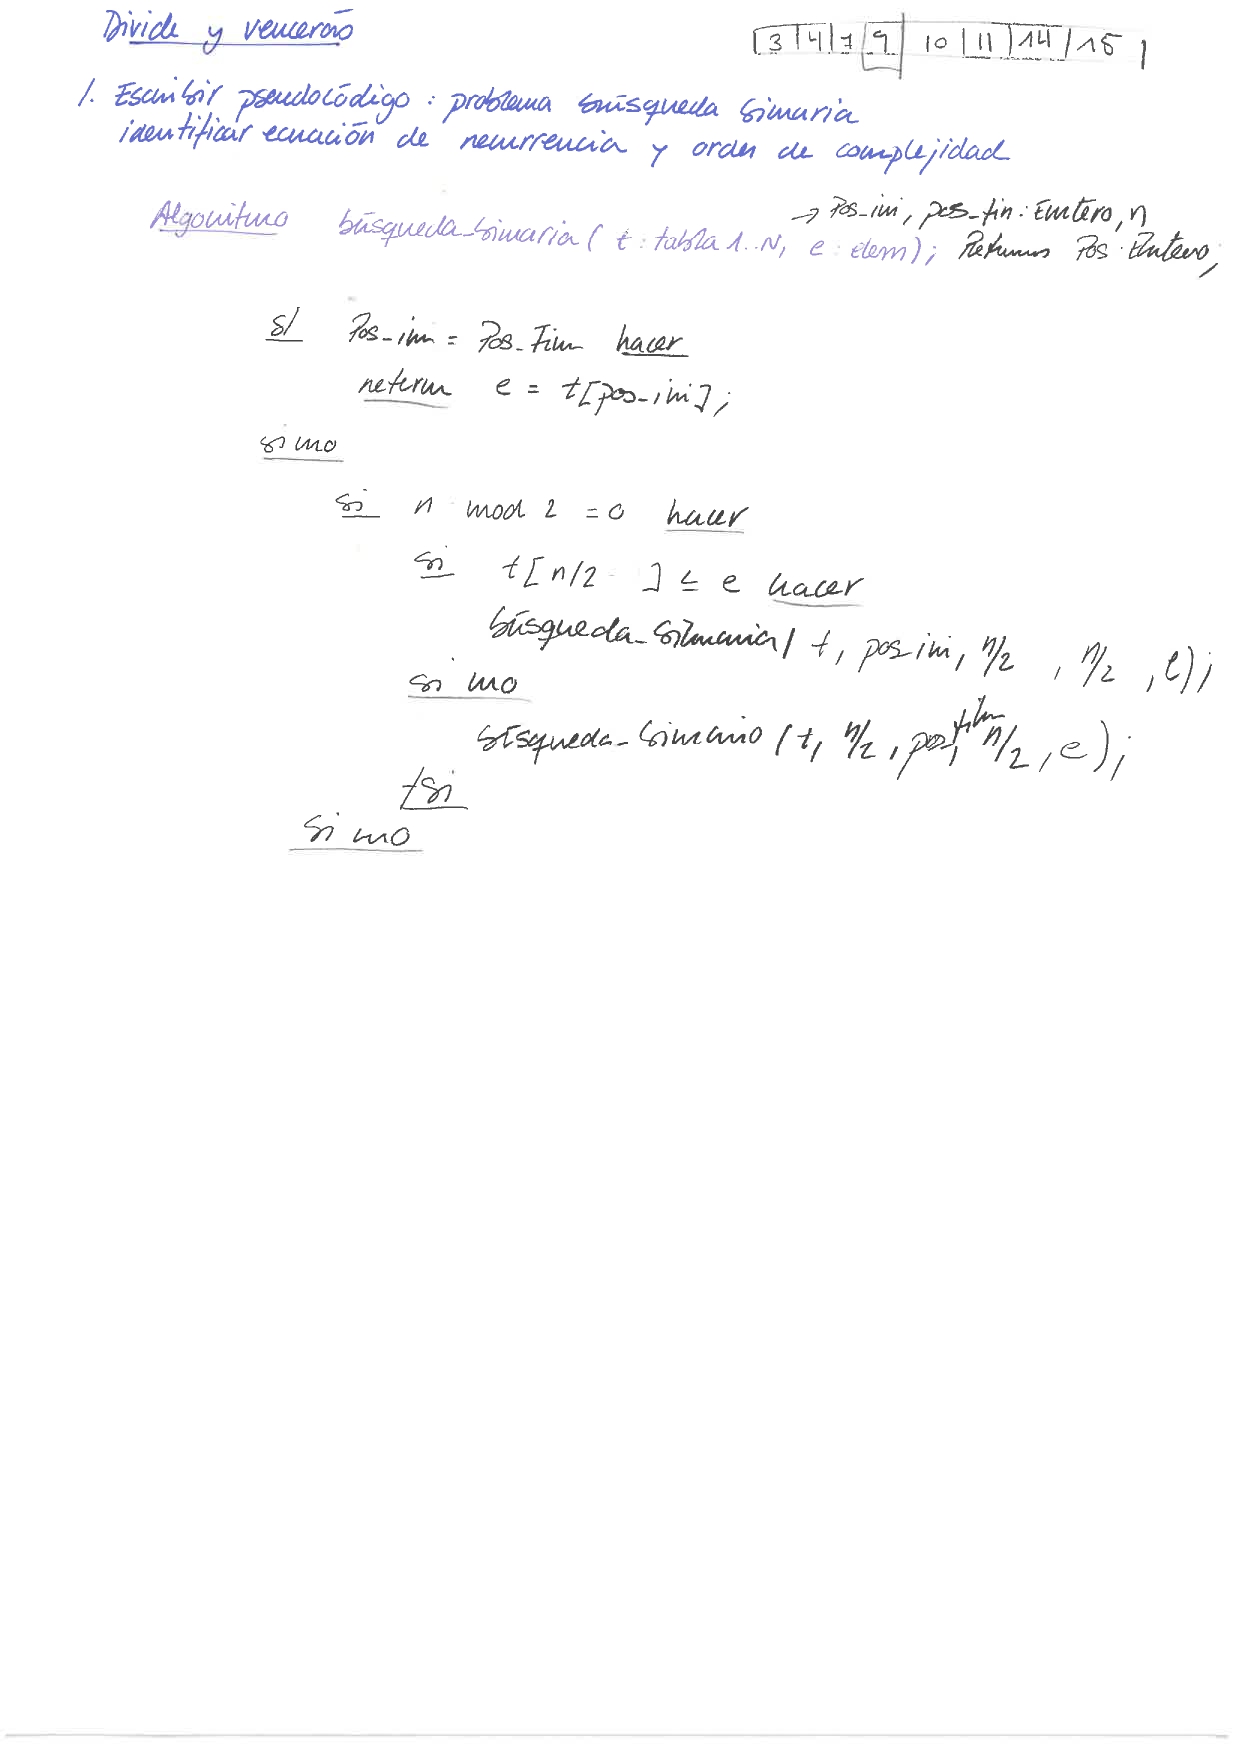 Divide y vencerás
[3|4|7|9| 10|11|14|15]
1. Escribir pseudocódigo: problema búsqueda binaria
identificar ecuación de recurrencia y orden de complejidad
→ Pos-ini, pos-fin: Entero, n
Algoritmo búsqueda-binaria( t: tabla 1..N, e: elem); Retorna Pos: Entero;
si Pos-ini = Pos-Fin hacer
return e = t[pos-ini];
sino
si n mod 2 = 0 hacer
si t[n/2 ] ≤ e hacer
búsqueda-binaria( t, pos ini, n/2 , n/2 , e);
sino
búsqueda-binaria (t, n/2, pos fin, n/2, e);
fsi
sino